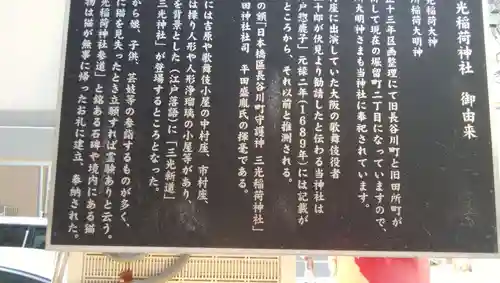 光稲荷神社 御由来
光稲荷大神
所稲荷大明神
正十三年区画整理にて旧長谷川町と旧田所町が
して現在の堀留町二丁目になっていますので、
所大明神さまも当神社に奉祀されています。
行座に出演していた大阪の歌舞伎役者
十郎が伏見より勧請したと伝わる当神社は
戸惣鹿子」元禄二年(1689年)には記載が
ところから、それ以前と推測される。
の額「日本橋區長谷川町守護神 三光稲荷神社」
田神社社司 平田盛胤氏の揮毫である。
には吉原や歌舞伎小屋の中村座、市村座、
は操り人形や人形浄瑠璃の小屋等があり、
を背景とした(江戸落語)に「三光新道」
三光神社」が登場するところとなった。
から娘、子供、芸妓等の参詣するものが多く、
に猫を見失ったとき立願すれば霊験ありと云う。
光稲荷神社参道」と銘ある石碑や境内にある猫
物は猫が無事に帰ったお礼に建立、奉納された。